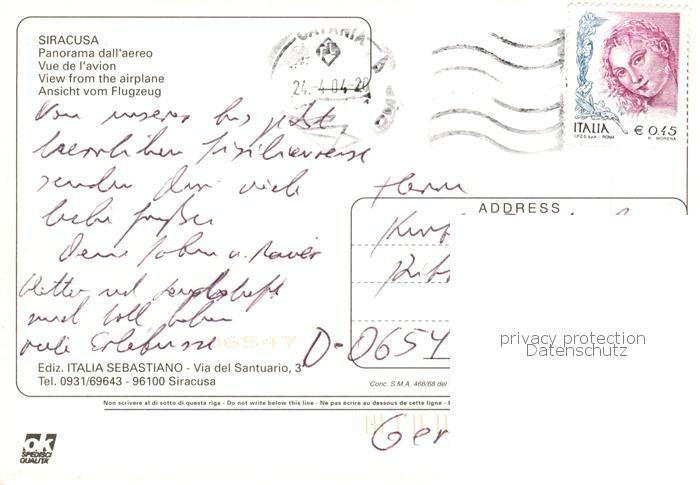 SIRACUSA
Panorama dall'aereo
Vue de l'avion
View from the airplane
Ansicht vom Flugzeug
CATANIA
24.-4.04-20
ITALIA € 0,45
I.P.Z.S. S.p.A. - ROMA R. MORENA
Von unserer bis jetzt
herrlichen Sizilienreise
senden Dir viele
liebe Grüße
Deine
Wetter und Landschaft
sind toll haben
viele Erlebnisse
Herrn
ADDRESS
D-0654
Ger
06547
privacy protection
Datenschutz
Ediz. ITALIA SEBASTIANO - Via del Santuario, 3
Tel. 0931/69643 - 96100 Siracusa
Conc. S.M.A. 468/68 del
Non scrivere al di sotto di questa riga - Do not write below this line - Ne pas écrire au dessous de cette ligne -
ok
SPEDISCI
QUALITA'